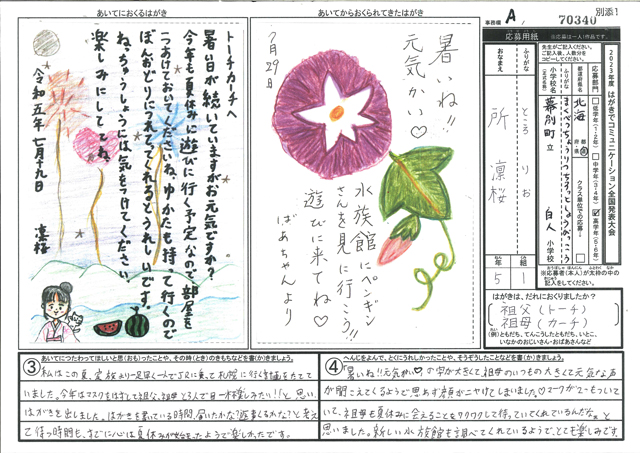 別添1
事務欄 A / 70340
あいてにおくるはがき
トーチカーチへ
暑い日が続いていますがお元気ですか?
今年も夏休みに遊びに行く予定なので部屋を
つあけておいてくださいね。ゆかたも持って行くので
ぼんおどりにつれてってくれるとうれしいです。
ね。ちゅうしょうには気をつけてください。
楽しみにしててね。
令和五年七月十九日
凛桜
あいてからおくられてきたはがき
暑いね!!
元気かい♡
7月29日
水族館にペンギン
さんを見に行こう!!
遊びに来てね♡
ばあちゃんより
2023年度 はがきでコミュニケーション全国発表大会
応募用紙
※応募は一人1作品です。
先生がご記入ください。
ご記入後、人数分を
コピーしてください。
応募部門
低学年(1・2年)
中学年(3・4年)
高学年(5・6年)
都道府県名
北海
クラス単位での応募
ふりがな
小学校名
(正式名称)
幕別町立
白人
小学校
ふりがな
ところ りお
おなまえ
所 凛桜
年 組
5 1
※応募者(本人)が太枠の中の
記入をしてください。
はがきは、だれにおくりましたか?
祖父(トーチ)
祖母(カーチ)
(例)ともだち、てんこうしたともだち、いとこ、
いなかのおじいさん・おばあさんなど
③ あいてにつたわってほしいと思(おも)ったことや、その時(とき)のきもちなどを書(か)きましょう。
私はこの夏、家族より一足早く一人でJRに乗って札幌に行く計画をたてて
いました。今年はマスクをはずして祖父、祖母と3人で目一杯楽しみたい!!と思い、
はがきを出しました。はがきを書いている時間、届いたかな?返事くるかな?と考え
て待つ時間も、すでに心は夏休みが始まったようで楽しかったです。
④ へんじをよんで、とくにうれしかったことや、そうぞうしたことなどを書(か)きましょう。
「暑いね!!元気かい♡」の字が大きくて、祖母のいつもの大きくて元気な声
が聞こえてくるようで思わず顔がニヤけてしまいました♡マークが2つもついて
いて、祖母も夏休みに会えることをワクワクして待っていてくれているんだな。と
思いました。新しい水族館も調べてくれているようで、とても楽しみです。